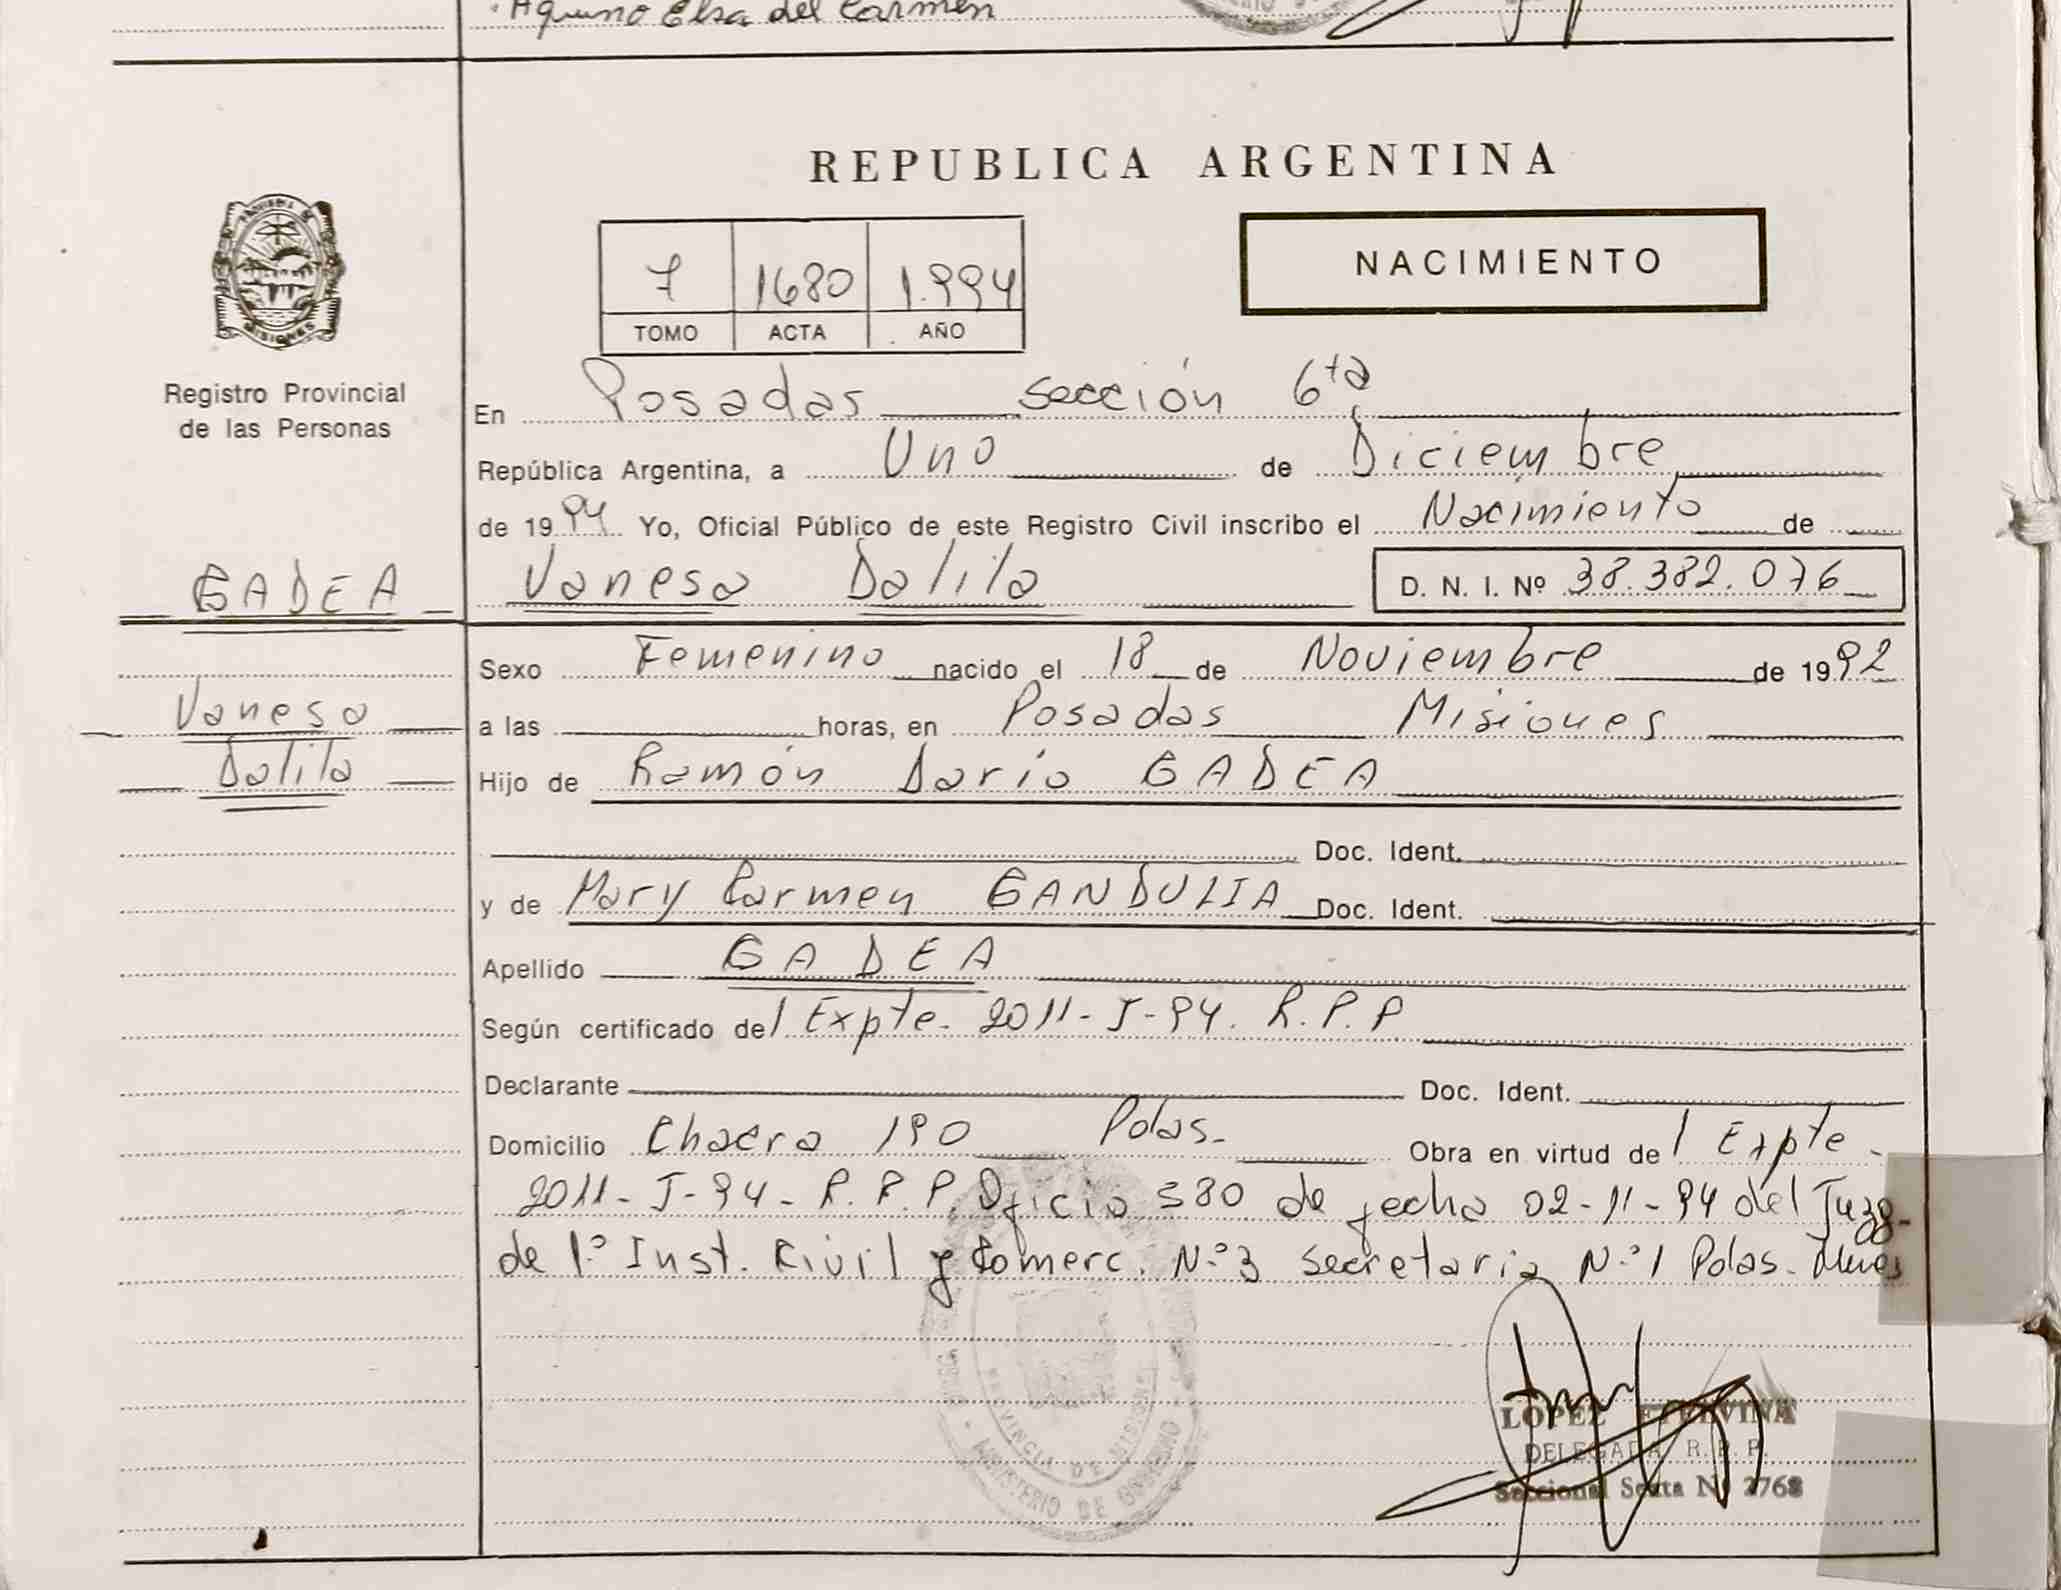 Aquino Elsa del Carmen
REPUBLICA ARGENTINA
NACIMIENTO
7 1680 1.994
TOMO ACTA AÑO
MISIONES
Registro Provincial
de las Personas
En Posadas sección 6ta
República Argentina, a Uno de Diciembre
de 1994 Yo, Oficial Público de este Registro Civil inscribo el Nacimiento de
GADEA
Vanesa Dalila D. N. I. Nº 38.382.076
Sexo Femenino nacido el 18 de Noviembre de 1992
Vanesa
a las horas, en Posadas Misiones
Dalila
Hijo de Ramón Dario GADEA
Doc. Ident.
y de Mary Carmen GANDULIA Doc. Ident.
Apellido GADEA
Según certificado del Expte. 2011-J-94. R.P.P
Declarante Doc. Ident.
Domicilio Chacra 190 Pdas. Obra en virtud del Expte-
2011-J-94-R.P.P. Oficio 580 de fecha 02-11-94 del Juzg-
de 1º Inst. Civil y Comerc. Nº3 secretaria Nº1 Pdas. Mnes
PROVINCIA DE MISIONES
MINISTERIO DE GOBIERNO
LOPEZ ETELVINA
DELEGADA R. P. P.
Seccional Sexta Nº 2768